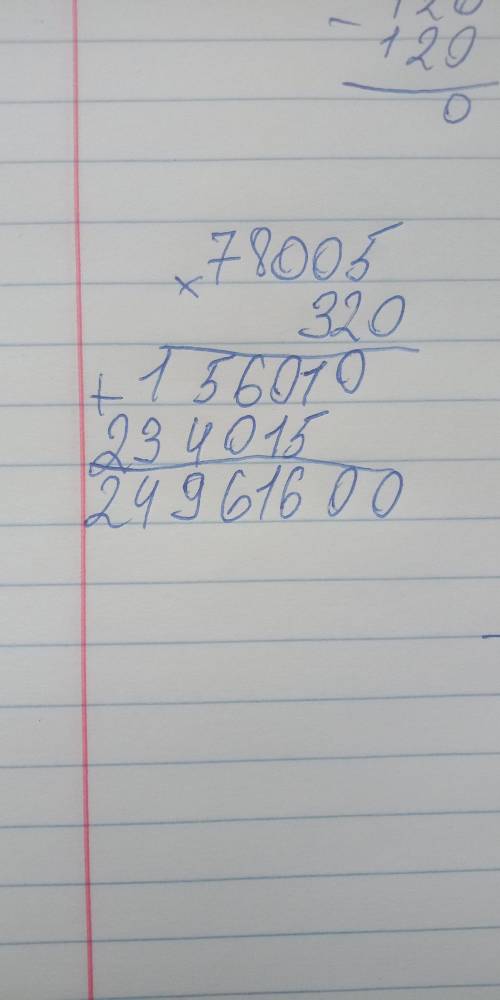 120
- 120
0
78005
× 320
+ 156010
234015
24961600